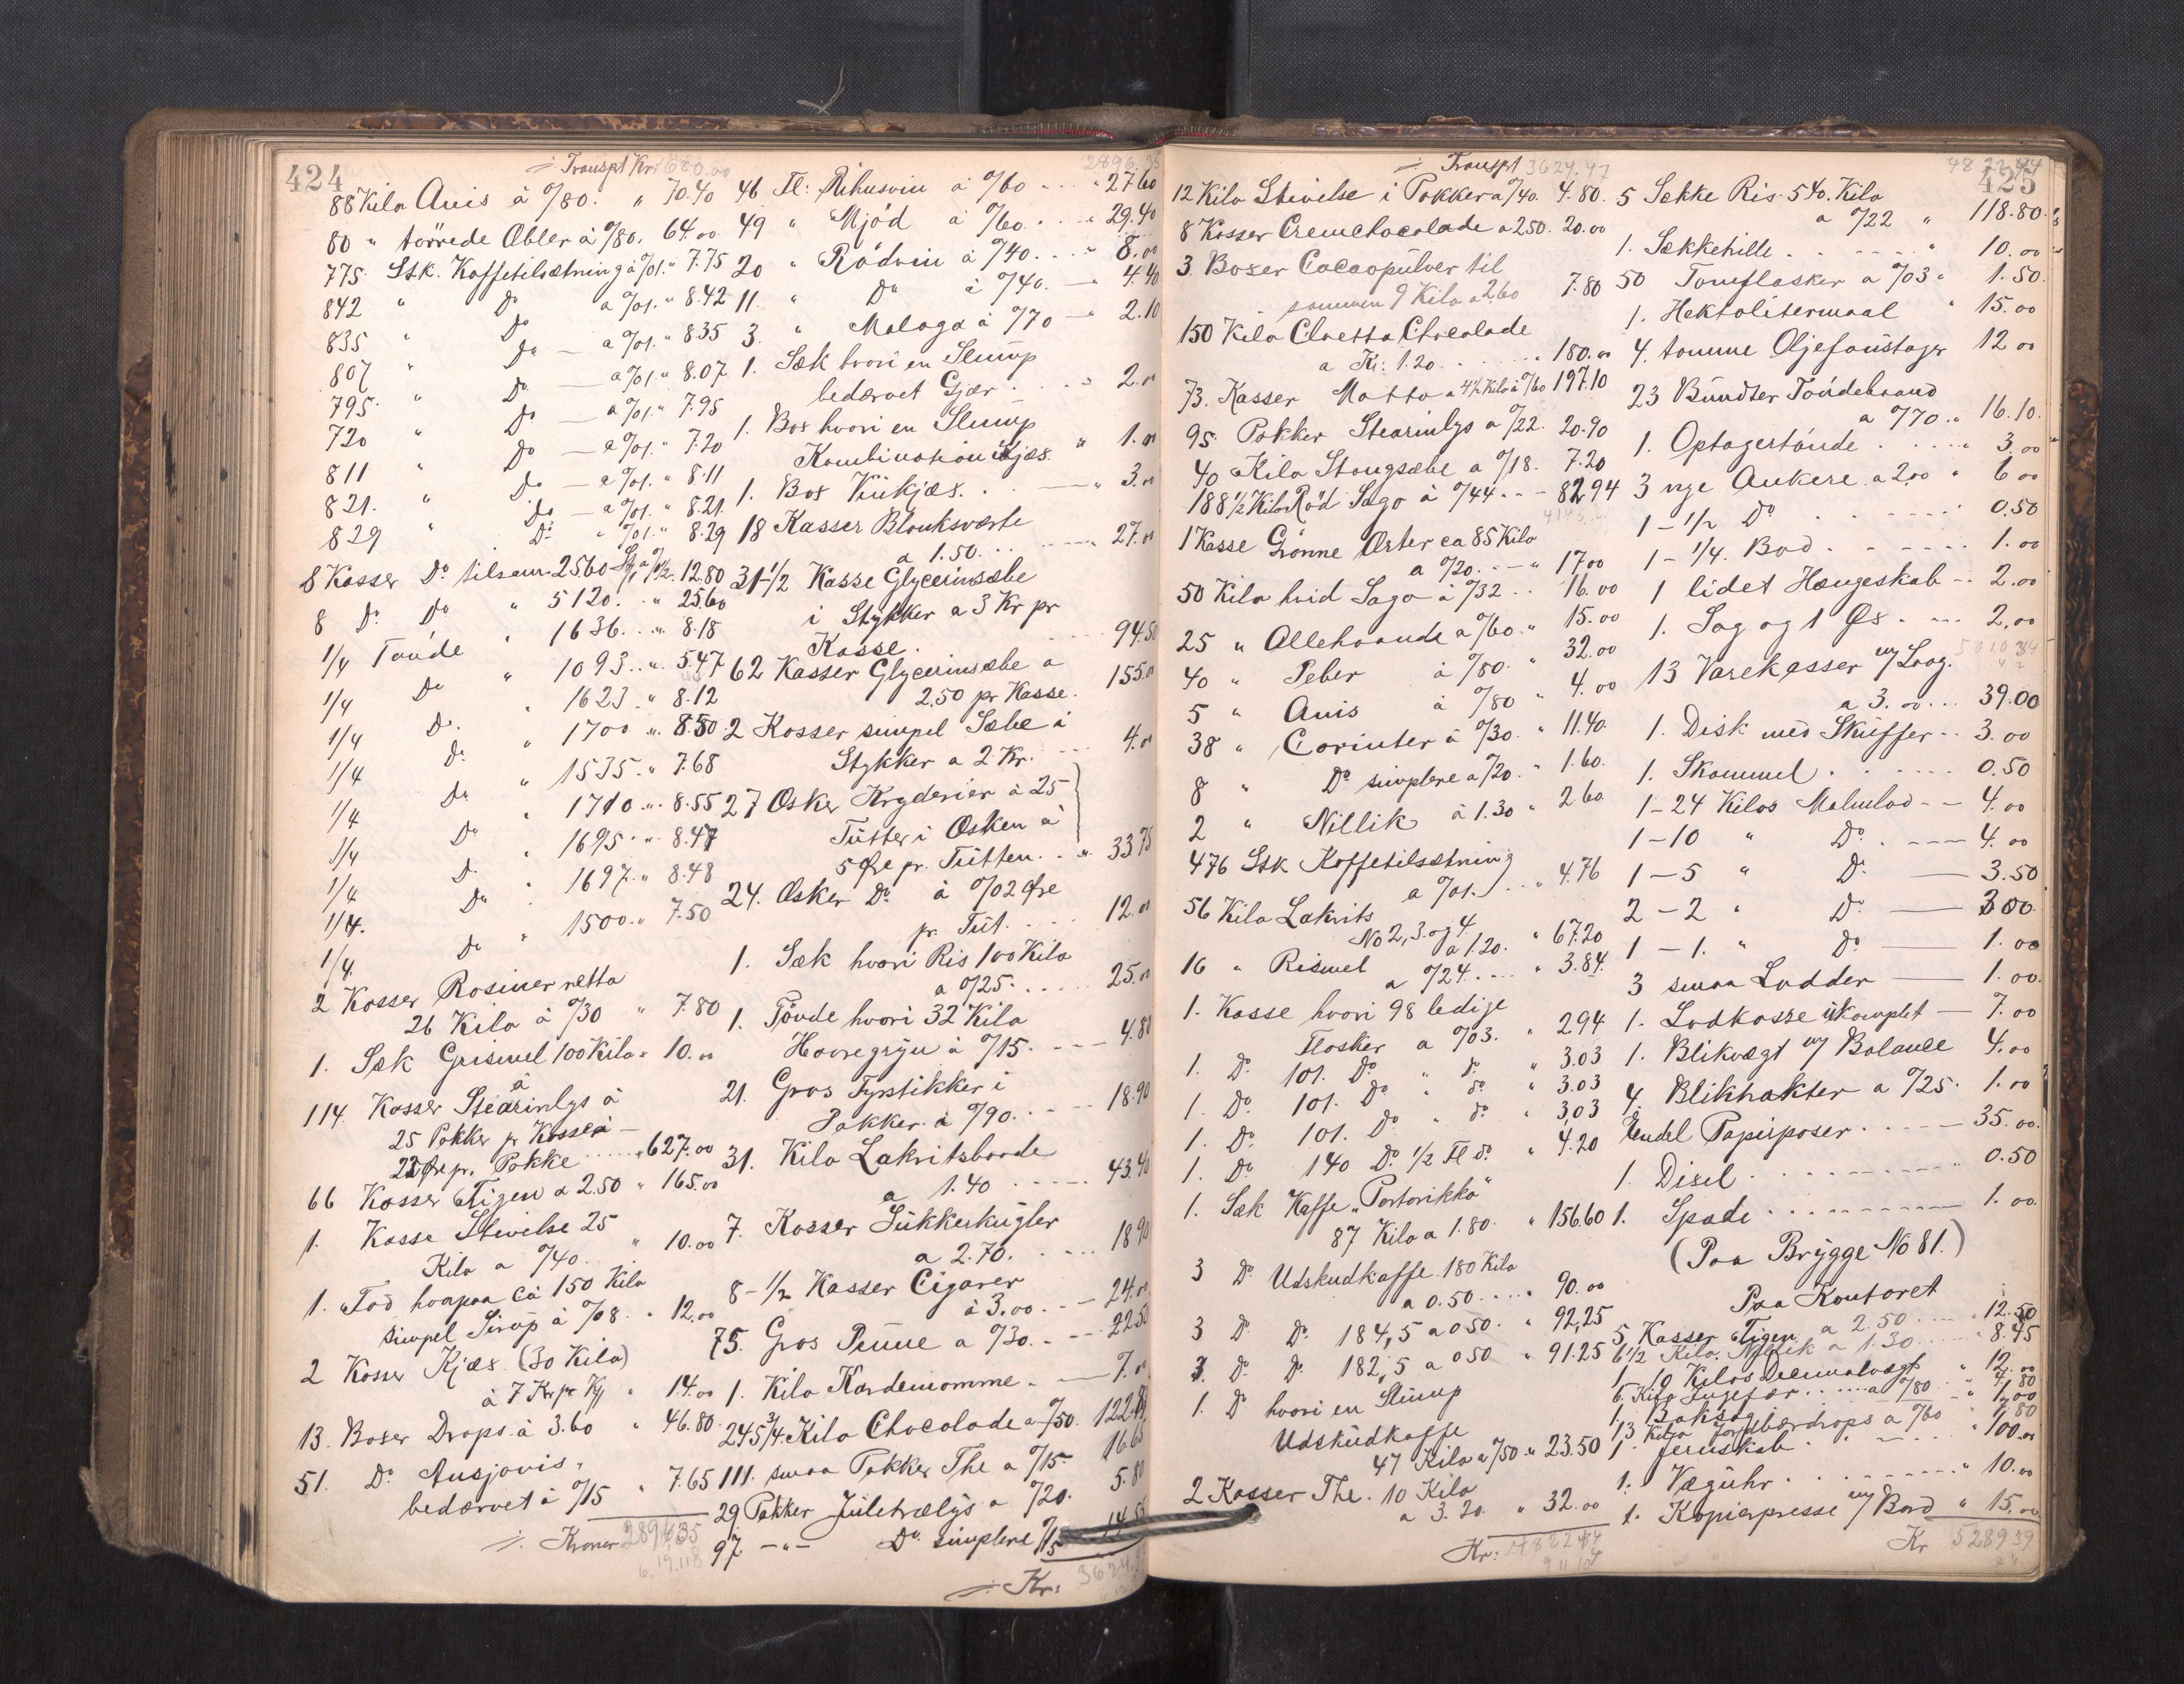 424
Transpt Kr. 1680.00
88 Kilo Anis à 0/80. " 70.40
80 " törrede Æbler à 0/80. 64.00
775 Stk. Kaffetilsætning à 0/01. " 7.75
842 " Do a 0/01. " 8.42
835 " Do a 0/01. " 8.35
807 " Do — a 0/01. " 8.07
795 " Do — a 0/01. " 7.95
720 " Do — a 0/01. " 7.20
811 " Do — a 0/01. " 8.11
821. " Do — a 0/01. " 8.21
829 " Do " 0/01. " 8.29
8 Kasser Do tilsam. 2560 Stk a 0/0½. 12.80
8 Do Do " 5120. " 25.60
1/4 Tønde " 1636. " 8.18
1/4 Do " 1093. " 5.47
1/4 Do " 1623 " 8.12
1/4 Do " 1700 " 8.50
1/4 Do " 1535 " 7.68
1/4 Do " 1710 " 8.55
1/4 Do " 1695 " 8.47
1/4 Do " 1697 " 8.48
1/4 Do " 1500 " 7.50
2 Kasser Rosiner netto
26 Kilo à 0/30 " 7.80
1. Sæk Grismel 100 Kilo " 10.00
114 Kasser Stearinlys à
25 Pakker pr Kasse à
22 Øre pr. Pakke " 627.00
66 Kasser Figen a 2.50 " 165.00
1. Kasse Stivelse 25
Kilo a 0/40 " 10.00
1. Fad hvorpaa ca 150 Kilo
simpel Sirup à 0/08 " 12.00
2 Kasser Kjæx (30 Kilo)
à 7 Kr pr Ks " 14.00
13. Boxer Drops à 3.60 " 46.80
51. Do Ansjovis,
bedærvet à 0/15 " 7.65
Kroner 2896,35
2896.35
46 Fl: Rihusvin à 0/60 " 27.60
49 " Mjød à 0/60 " 29.40
20 " Rödvin à 0/40 " 8.00
11. " Do à 0/40. — 4.40
3. " Malaga à 0/70 — 2.10
1. Sæk hvori en Slump
bedærvet Gjær 2.00
1. Box hvori en Slump
Kombination Kjæs " 1.00
1. Box Vinkjæs " 3.00
18 Kasser Blanksværte
a 1.50 27.00
31-½ Kasse Glycerinsæbe
i Stykker a 3 Kr pr
Kasse 94.50
62 Kasser Glycerinsæbe a
2.50 pr Kasse. 155.00
2 Kasser simpel Sæbe i
Stykker a 2 Kr. 4.00
27 Æsker Kryderier à 25
Tutter i Æsken à
5 Øre pr. Tutten " 33.75
24. Æsker Do à 0/02 Øre
pr. Tut. 12.00
1. Sæk hvori Ris 100 Kilo
a 0/25 25.00
1. Tönde hvori 32 Kilo
Havregryn à 0/15 4.80
21. Gros Fyrstikker i
Pakker à 0/90 18.90
31. Kilo Lakritsbaade
a 1.40 43.40
7. Kasser Sukkerkugler
a 2.70 18.90
8-½ Kasser Cigarer
à 3.00 24.00
75. Gros Penne a 0/30 22.50
1. Kilo Kardemomme 7.00
245¾. Kilo Chocolade a 0/50. 122.88
111. smaa Pakker The a 0/15 16.65
29 Pakker Juletrælys a 0/20. 5.80
97. —"— Do simplere 0/15 14.55
Kr:
425
Transpt 3624.47
12 Kilo Stivelse i Pakker a 0/40. 4.80
8 Kasser Cremchocolade a 250. 20.00
3. Boxer Cacaopulver til
sammen 9 Kilo a 2.60 7.80
150 Kilo Cloetta Chocolade
a Kr: 1.20 180.00
73. Kasser Matto a 4½ Kilo à 0/60 197.10
95 Pakker Stearinlys a 0/22. 20.90
40 Kilo Stangsæbe a 0/18. 7.20
188½ Kilo Rød Sago à 0/44 82.94
1 Kasse Grønne Ærter ca 85 Kilo
a 0/20 17.00
50 Kilo hvid Sago à 0/32 16.00
25 " Allehaande a 0/60 " 15.00
40 " Peber à 0/80. " 32.00
5 " Anis à 0/80 " 4.00
38 " Corinter à 0/30 " 11.40
8 " Do simplere a 0/20. " 1.60
2 " Nillik à 1.30 " 2.60
476 Stk Kaffetilsætning
a 0/01. " 4.76
56 Kilo Lakrits
No 2, 3. og 4. a 1.20. " 67.20
16 " Rismel a 0/24 " 3.84
1. Kasse hvori 98 ledige
Flasker a 0/03. " 2.94
1. Do 101. Do " do " 3.03
1. Do 101. Do " do " 3.03
1. Do 101. Do " do " 3.03
1. Do 140 Do ½ Fl do " 4.20
1. Sæk Kaffe „Portorikko"
87 Kilo a 1.80 " 156.60
3 Do Udskudkaffe 180 Kilo
a 0.50 90.00
3 Do Do 184,5 a 0.50 " 92,25
3. Do Do 182,5 a 0.50 " 91.25
1. Do hvori en Slump
Udskudkaffe
47 Kilo a 0/50 " 23.50
2 Kasser The. 10 Kilo
a 3.20. " 32.00
Kr:
5 Sekke Ris 540. Kilo
a 0/22 " 118.80
1. Sækkehille " 10.00
50 Tomflasker a 0/03 " 1.50
1. Hektolitermaal " 15.00
4. tomme Oljefoustager 12.00
23 Bundter Tøndebaand
a 0/70 " 16.10
1. Optagertönde 3.00
3 nye Ankere a 2.00 " 6.00
1-½ Do 0.50
1-¼. Bad 1.00
1 lidet Hængeskab 2.00
1. Sag og 1 Øx 2,00
13 Varekasser m/ Laag.
a 3.00 39.00
1. Disk med Skuffer 3.00
1. Skammel 0.50
1-24 Kilos Malmlod 4.00
1-10 " Do 4.00
1-5 " Do 3.50
2-2 " Do 3.00
1-1. " Do 1.00
3 smaa Lodder 1.00
1. Lodkasse ukomplet 7.00
1. Blikvægt m/ Balance 4.00
4. Bliktrakter a 0/25 1.00
Endel Papirposer 35.00
1. Disel 0.50
1. Spade 1.00
(Paa Brygge No 81.)
Paa Kontoret
5 Kasser Figen a 2.50 12.50
6½ Kilo. Nillik a 1.30 8.45
1. 10 Kilos Decimalvægt " 12.00
6. Kilo Ingefær a 0/80 " 4,80
1. Baksag " 1.00
13 Kilo Jordbærdrops a 0/60 " 7.80
1. Jernskab " 100.00
1. Væguhr " 10.00
1. Kopierpresse m/ Bord " 15.00
Kr 5289.39